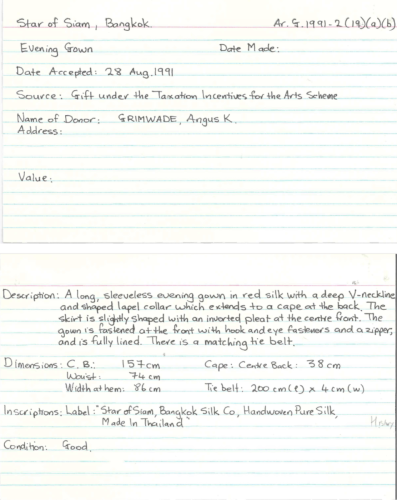 Star of Siam, Bangkok. Ar. G. 1991-2(19)(a)(b)
Evening Gown Date Made:
Date Accepted: 28 Aug. 1991
Source: Gift under the Taxation Incentives for the Arts Scheme
Name of Donor: GRIMWADE, Angus K.
Address:
Value:
Description: A long, sleeveless evening gown in red silk with a deep V-neckline
and shaped lapel collar which extends to a cape at the back. The
skirt is slightly shaped with an inverted pleat at the centre front. The
gown is fastened at the front with hook and eye fasteners and a zipper,
and is fully lined. There is a matching tie belt.
Dimensions: C.B.: 157cm Cape: Centre Back: 38cm
Waist: 74cm
Width at hem: 86cm Tie belt: 200cm(ℓ) x 4cm(w)
Inscriptions: Label: "Star of Siam, Bangkok Silk Co, Handwoven Pure Silk,
Made In Thailand"
Condition: Good.